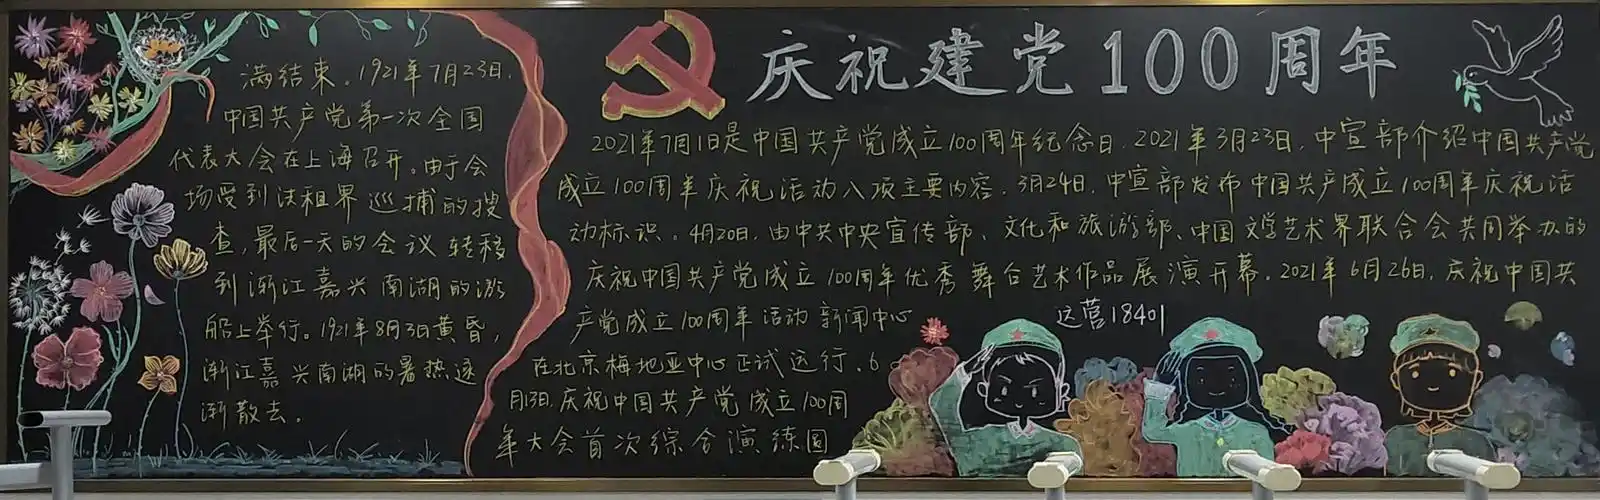 庆祝建党100周年
满结束。1921年7月23日,
中国共产党第一次全国
代表大会在上海召开。由于会
场受到法租界巡捕的搜
查,最后一天的会议转移
到浙江嘉兴南湖的游
船上举行。1921年8月3日黄昏,
浙江嘉兴南湖的暑热逐
渐散去。
2021年7月1日是中国共产党成立100周年纪念日.2021年3月23日,中宣部介绍中国共产党
成立100周年庆祝活动八项主要内容.3月24日,中宣部发布中国共产成立100周年庆祝活
动标识。4月20日,由中共中央宣传部、文化和旅游部、中国文学艺术界联合会共同举办的
庆祝中国共产党成立100周年优秀舞台艺术作品展演开幕。2021年6月26日,庆祝中国共
产党成立100周年活动新闻中心
在北京梅地亚中心正试运行.6
月13日,庆祝中国共产党成立100周
年大会首次综合演练圆
运营18401